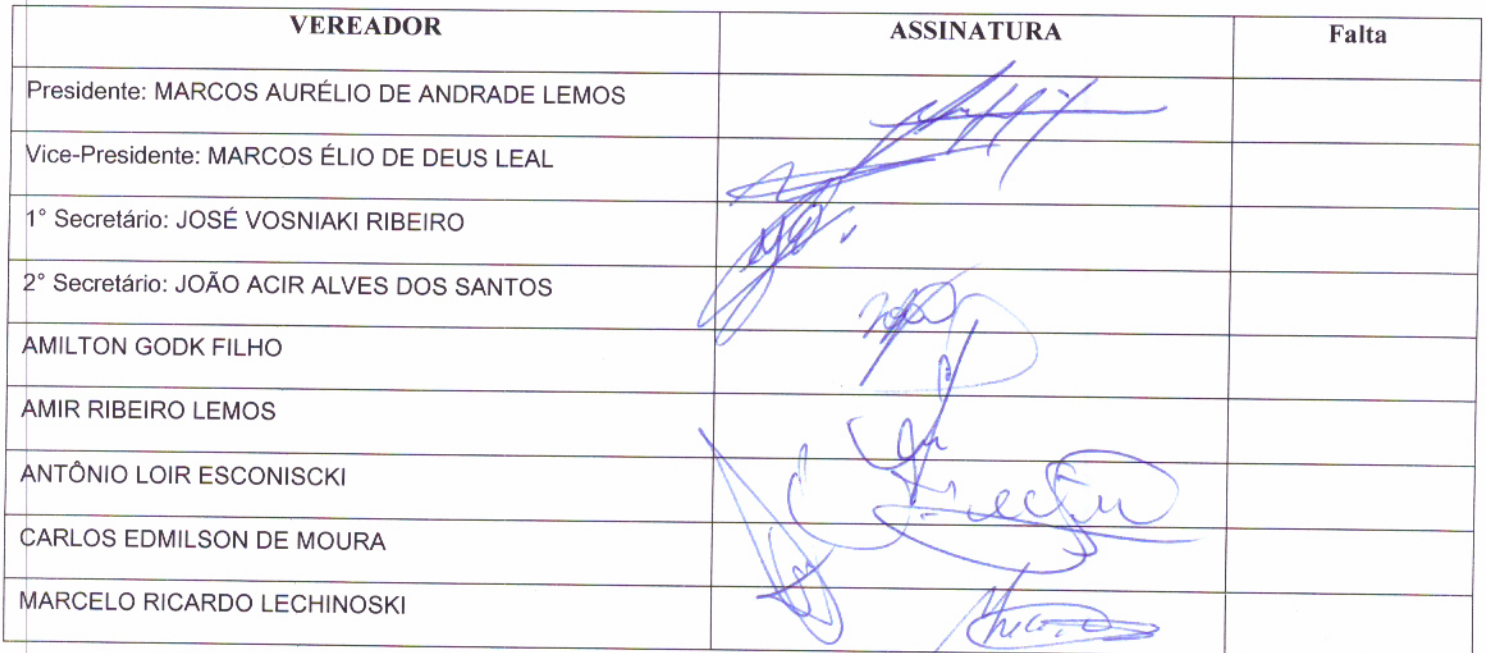 VEREADOR ASSINATURA Falta
Presidente: MARCOS AURÉLIO DE ANDRADE LEMOS
Vice-Presidente: MARCOS ÉLIO DE DEUS LEAL
1° Secretário: JOSÉ VOSNIAKI RIBEIRO
2° Secretário: JOÃO ACIR ALVES DOS SANTOS
AMILTON GODK FILHO
AMIR RIBEIRO LEMOS
ANTÔNIO LOIR ESCONISCKI
CARLOS EDMILSON DE MOURA
MARCELO RICARDO LECHINOSKI